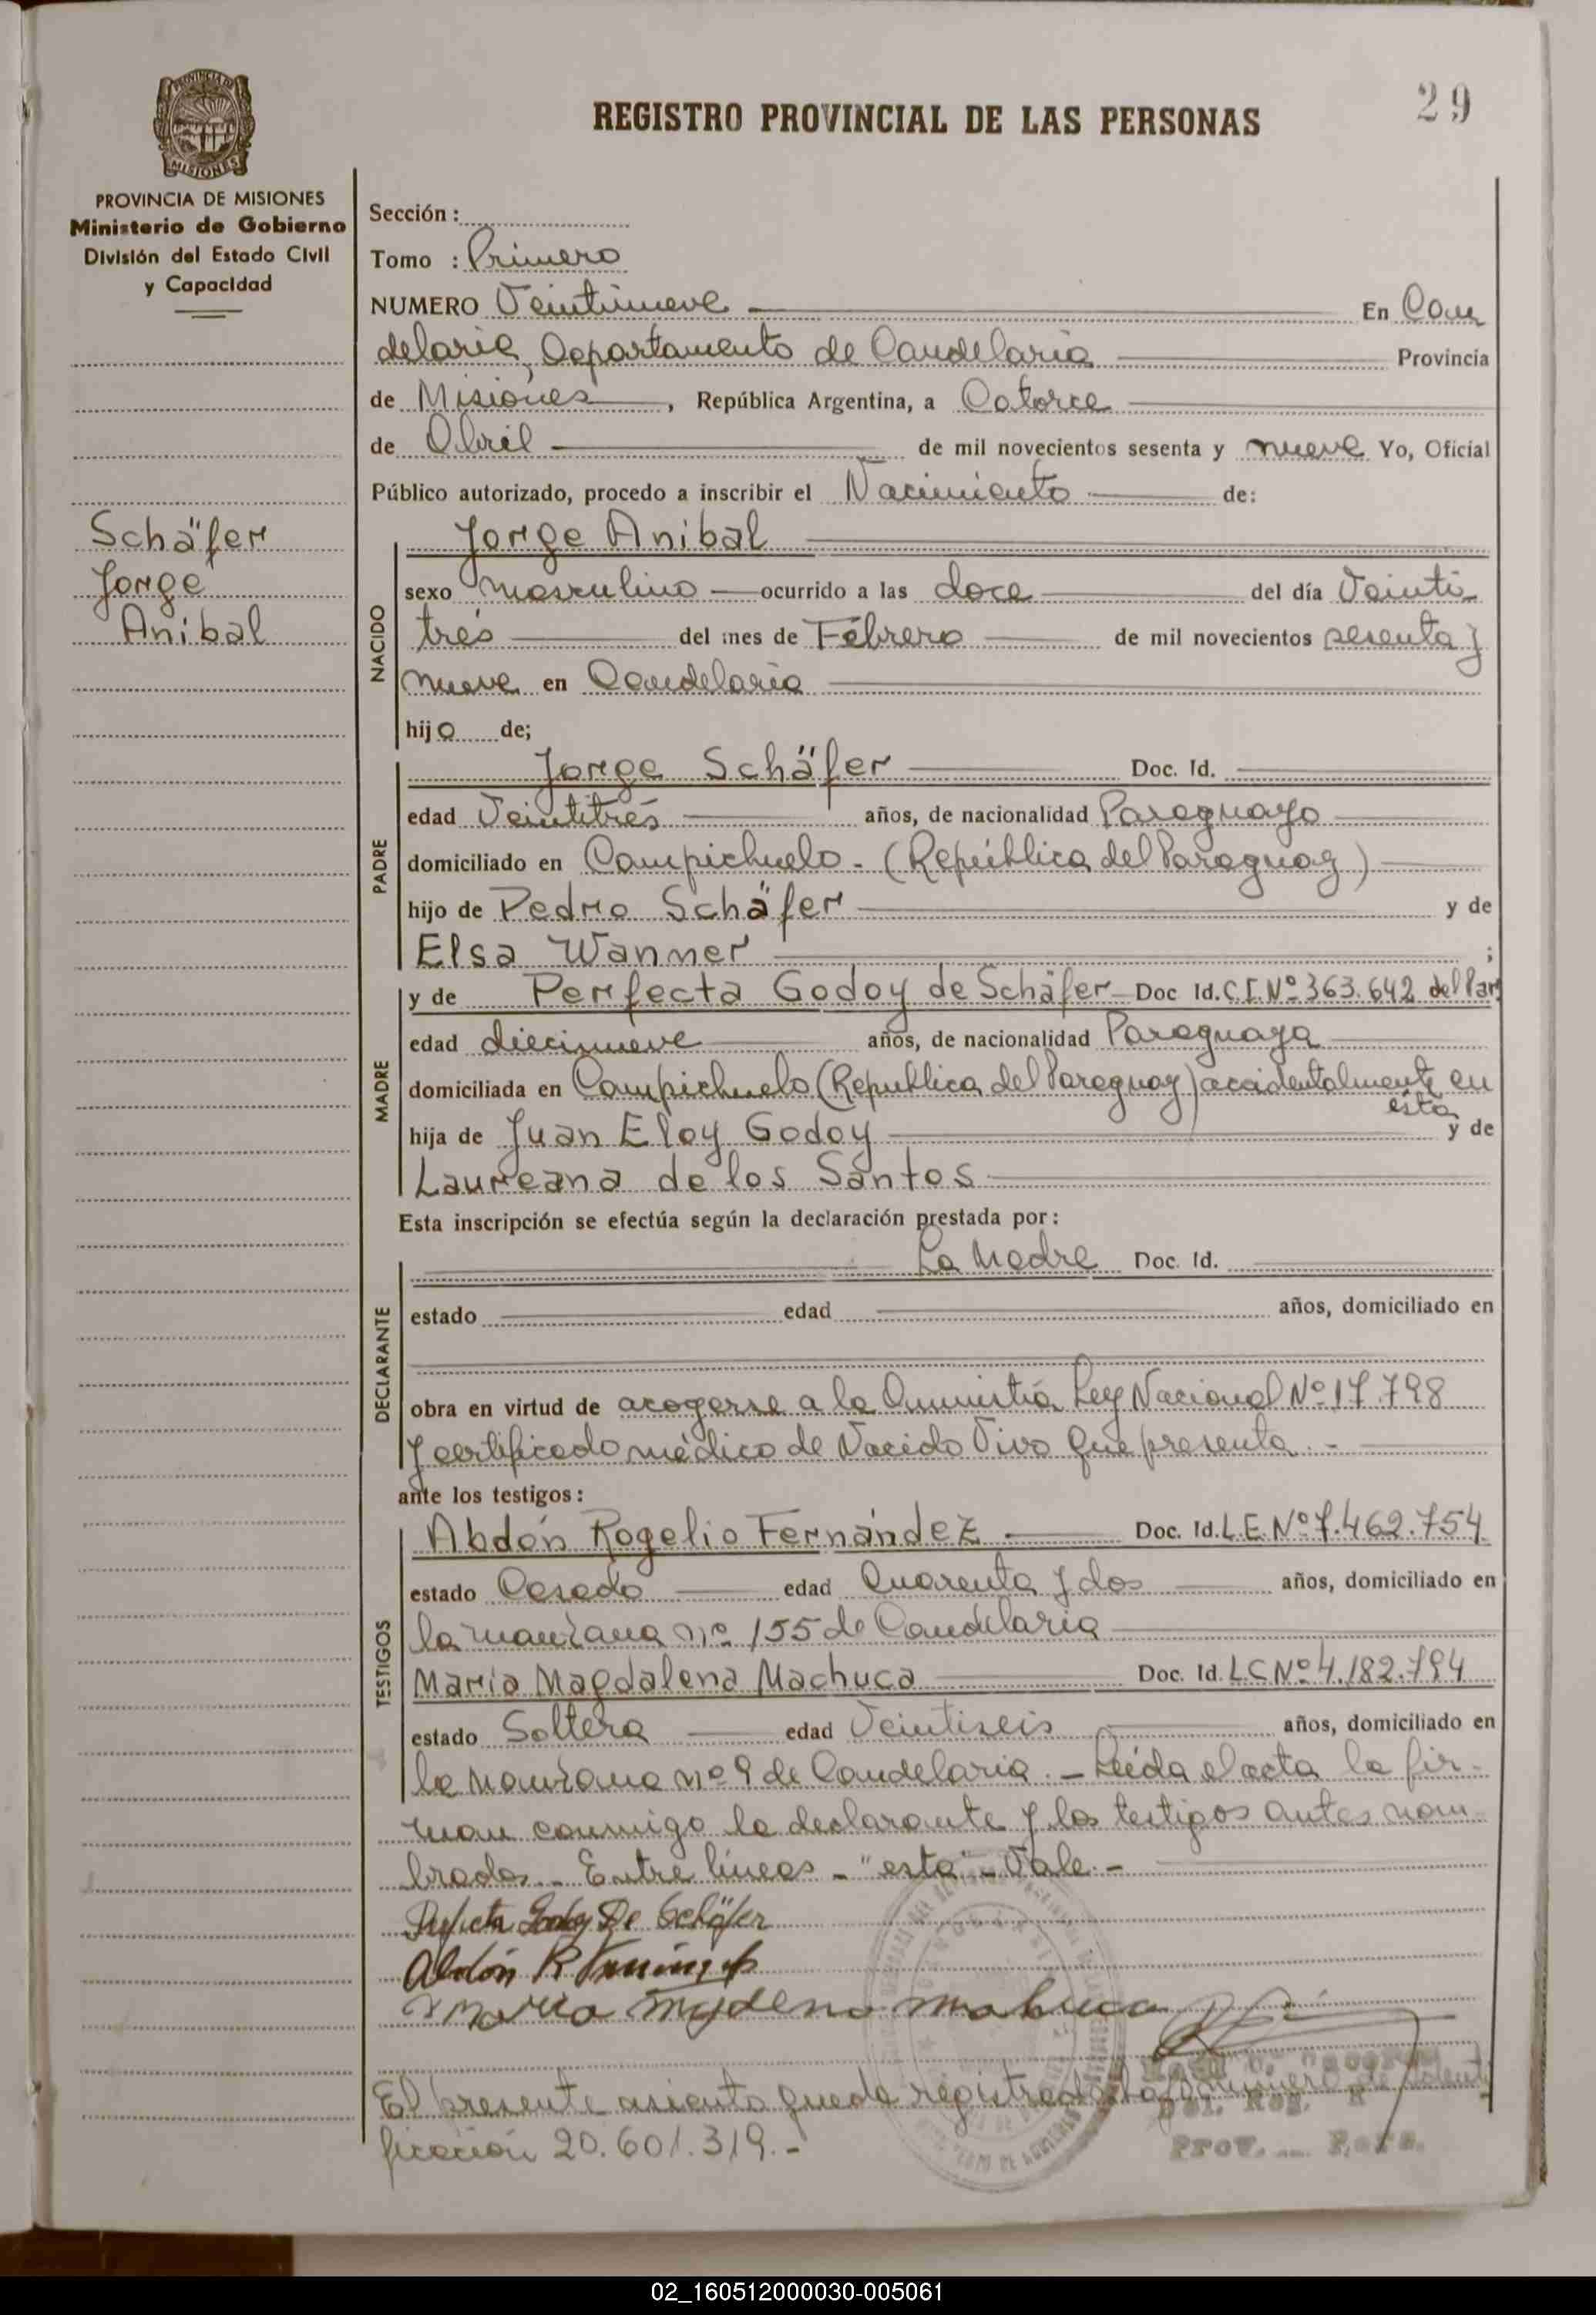 29
REGISTRO PROVINCIAL DE LAS PERSONAS
PROVINCIA DE MISIONES
Ministerio de Gobierno
División del Estado Civil
y Capacidad
Schäfer
Jorge
Anibal
Sección :
Tomo : Primero
NUMERO Veintinueve En Can
delaria, Departamento de Candelaria Provincia
de Misiones, República Argentina, a Catorce
de Abril de mil novecientos sesenta y nueve Yo, Oficial
Público autorizado, procedo a inscribir el Nacimiento de:
NACIDO
Jorge Anibal
sexo masculino ocurrido a las doce del día Veinti
trés del mes de Febrero de mil novecientos sesenta y
nueve en Candelaria
hijo de;
PADRE
Jorge Schäfer Doc. Id.
edad Veintitrés años, de nacionalidad Paraguayo
domiciliado en Campichuelo - (República del Paraguay)
hijo de Pedro Schäfer y de
Elsa Wanner ;
MADRE
y de Perfecta Godoy de Schäfer Doc Id. C.I. Nº 363.642 del Par
edad diecinueve años, de nacionalidad Paraguaya
domiciliada en Campichuelo (Republica del Paraguay) accidentalmente en
esta
hija de Juan Eloy Godoy y de
Laureana de los Santos
Esta inscripción se efectúa según la declaración prestada por :
DECLARANTE
La Madre Doc. Id.
estado edad años, domiciliado en
obra en virtud de acogerse a la Amnistía Ley Nacional Nº 17.798
y certificado médico de Nacido Vivo que presenta. -
ante los testigos :
TESTIGOS
Abdón Rogelio Fernández Doc. Id. L.E. Nº 7.462.754
estado Casado edad Cuarenta y dos años, domiciliado en
la manzana nº 155 de Candelaria
María Magdalena Machuca Doc. Id. L.C Nº 4.182.794
estado Soltera edad Veintiseis años, domiciliado en
la manzana nº 9 de Candelaria. - Leída el acta la fir-
man conmigo la declarante y los testigos antes nom-
brados. - Entre líneas - "esta" - Vale. -
Perfecta Godoy De Schäfer
Abdón R Fernández
Maria Magdalena Machuca
El presente asiento queda registrado bajo número de identi
ficación 20.601.319. -
Del. Reg.
Prov. Pers.
02_160512000030-005061